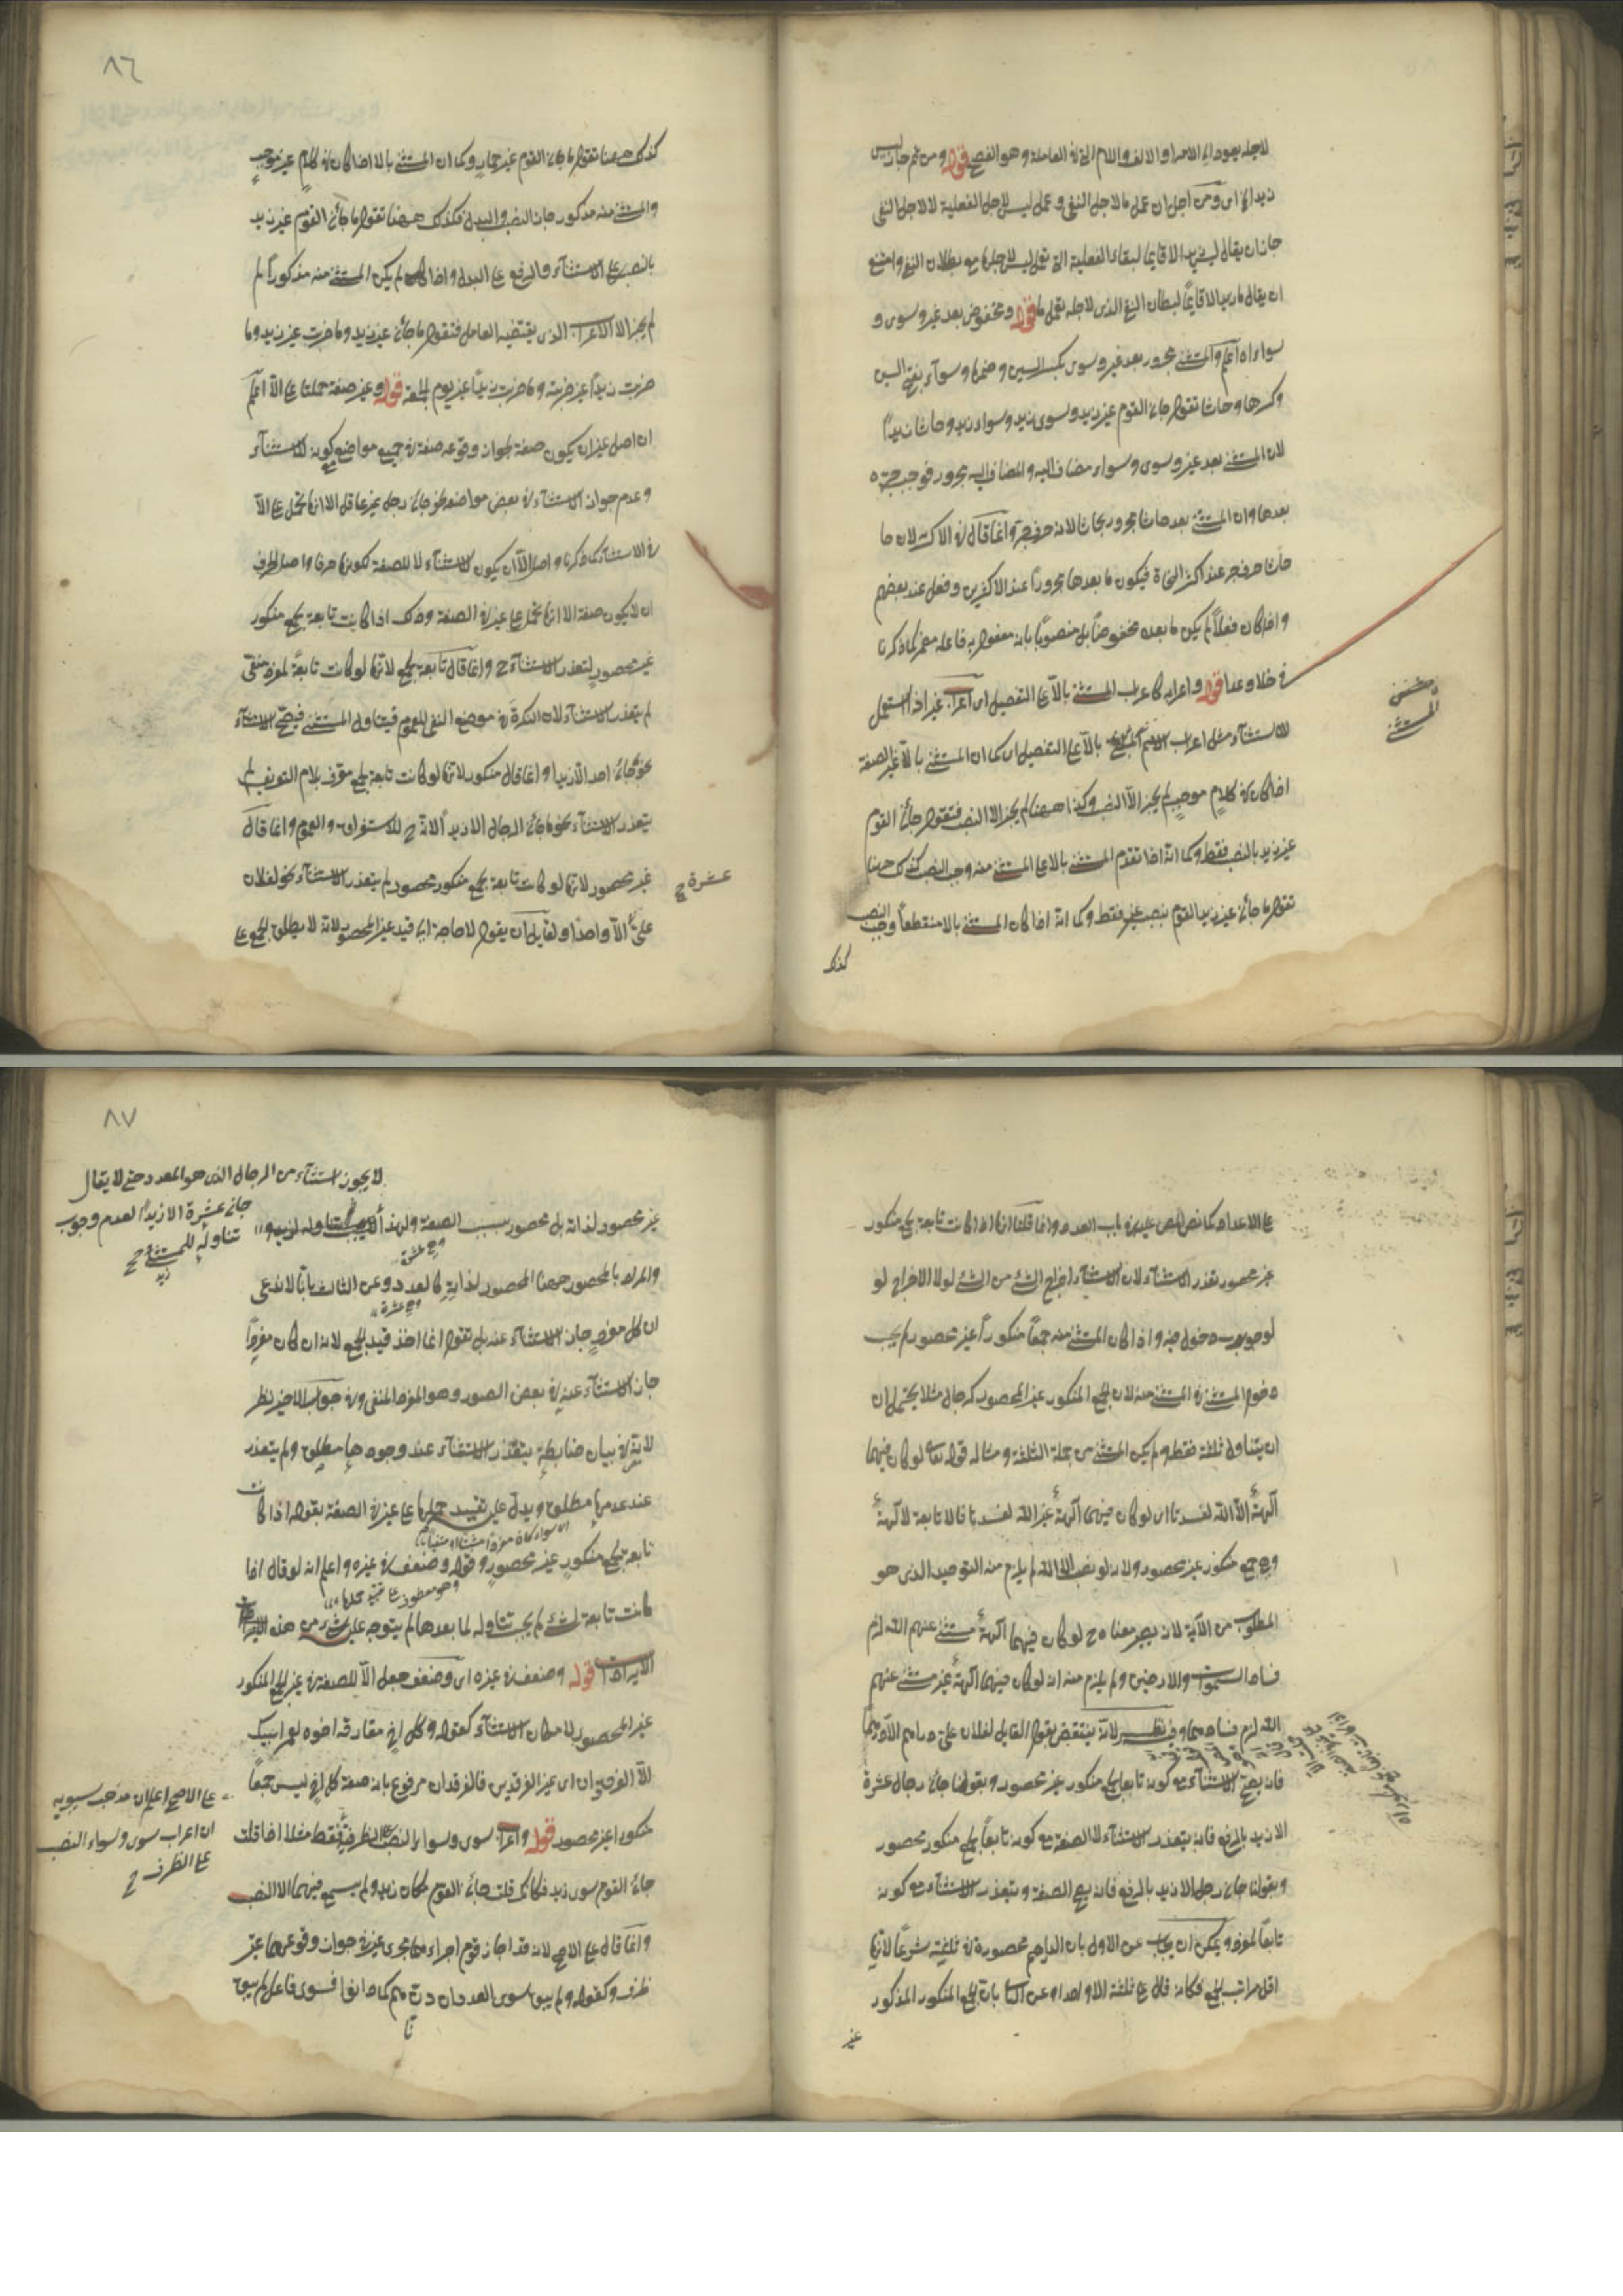 لاجله يعود الى الامر او الالف واللام التي في العاملة وهو الفصح قوله ومن ثم جاز ليس
زيد الا اى ومن اجل ان عمل ما لاجل النفى وعمل ليس لاجل الفعلية لا لاجل النفى
جاز ان يقال ليس زيد الا قايما لبقاء الفعلية التى تعمل ليس لاجلها مع بطلان النفى وامتنع
ان يقال ما زيد الا قايمًا لبطلان النفى الذى لاجله يعمل ما قوله ومخفوض بعد غير وسوى و
سواء اه اعلم والمستثنى مجرور بعد غير وسوى بكسر السين وضمها وسوآء بفتح السين
وكسرها وحاشا تقول جاءنى القوم غير زيد وسوى زيد وسواء زيد وحاشا زيدًا
لان المستثنى بعد غير وسوى وسواء مضاف اليه والمضاف اليه مجرور فوجب جره
بعدها وان المستثنى بعد حاشا مجرور بحاشا لانه حرف جر وانما قال فى الاكثر لان حا
حاشا حرف جر عند اكثر النحاة فيكون ما بعدها مجرورًا عند الاكثرين وفعل عند بعضهم
واذا كان فعلاً لم يكن ما بعده مخفوضًا بل منصوبًا بانه مفعول به فاعله مضمر كما ذكرنا
فى خلا وعدا قوله واعراب كاعراب المستثنى بالّا على التفصيل اى اعراب غير اذا استعمل
للاستثناء مثل اعراب الاسم الواقع بالّا على التفصيل اى كما ان المستثنى بالّا غير الصفة
اذا كان فى كلامٍ موجبٍ لم يجز الّا النصب وكذا ههنا لم يجز الا النصب فتقول جاءنى القوم
غير زيد بالنصب فقط وكما انه اذا تقدم المستثنى بالا على المستثنى منه وجب النصب كذلك ههنا
تقول ما جاءنى غير زيد القوم بنصب غير فقط وكما انه اذا كان المستثنى بالا منقطعاً وجب النصب
كذلك
المستثنى
٨٦
كذلك ههنا تقول ما جاءنى القوم غير حمارٍ وكما ان المستثنى بالا اذا كان فى كلامٍ غير موجبٍ
والمستثنى منه مذكور جاز النصب والبدل فكذلك ههنا تقول ما جاءنى القوم غير زيد
بالنصب على الاستثناء والرفع على البدل واذا لم يكن المستثنى منه مذكوراً لم
لم يجز الا الاعراب الذى يقتضيه العامل فتقول ما جاءنى غير زيد وما ضربت غير زيد وما
ضربت زيداً غير ضربته وما ضربت زيدًا غير يوم الجمعة قوله وغير صفة حملت على الّا اعلم
ان اصل غير ان يكون صفة لجواز وقوعه صفة فى جميع مواضع كونه للاستثناء
وعدم جواز الاستثناء فى بعض مواضعه نحو جاءنى رجل غير عاقل الا انها تحمل على الّا
فى الاستثناء كما ذكرنا واصل الّا ان يكون للاستثناء لا للصفة لكونها حرفا واصل الحرف
ان لا يكون صفة الا انها تحمل على غير فى الصفة وذلك اذا كانت تابعة لجمع منكور
غير محصورٍ لتعذر الاستثناء ح وانما قال تابعة لجمع لانها لو كانت تابعةً لمفرد منفى
لم يتعذر الاستثناء لان النكرة فى موضع النفى للعموم فيتناول المستثنى فيصح الاستثناء
نحو ما جاءنى احد الّا زيدا وانما قال منكور لانها لو كانت تابعة لجمع معرف بلام التعريف لم
يتعذر الاستثناء نحو ما جاءنى الرجال الا زيداً لانه ح للاستغراق والعموم وانما قال
غير محصور لانها لو كانت تابعة لجمع منكور محصور لم يتعذر الاستثناء نحو لفلان
علىّ الّا واحدًا ولقايل ان يقول لا حاجة الى قيد غير المحصور لانه لا يطلق الجمع على
عشرة ح
على الاعداد كما نص المص عليه فى باب العدد وانما قلنا انها اذا كانت تابعة لجمع منكور
غير محصور تعذر الاستثناء لان الاستثناء اخراج الشئ من الشئ لولا الاخراج لو
لوجوب دخوله فيه واذا كان المستثنى منه جمعاً منكوراً غير محصور لم يجب
دخول المستثنى فى المستثنى منه لان الجمع المنكور غير المحصور كرجال مثلا يحتمل ان
ان يتناول ثلثة فقط ولم يكن المستثنى من جملة الثلثة ومثاله قوله تعا لو كان فيهما
آلهة الّا الله لفسدتا اى لو كان فيهما آلهة غير الله لفسدتا فالا تابعة لآلهة
وهى جمع منكور غير محصور ولانه لو نصب الا الله لم يلزم منه التوحيد الذى هو
المطلوب من الآية لانه يصير معناه ح لو كان فيهما آلهة مستثنى عنهم الله لزم
فساد السموات والارضين ولم يلزم منه انه لو كان فيهما آلهة غير مستثنى عنهم
الله لزم فسادهما وفيه نظر لانه ينتقض بقول القايل لفلان علىّ دراهم الّا درهما
فانه يصح الاستثناء مع كونه تابعا لجمع منكور غير محصور وبقولنا جاءنى رجال عشرة
الا زيد بالرفع فانه يتعذر الاستثناء لا الصفة مع كونه تابعاً لجمع منكور محصور
وبقولنا جاءنى رجل الا زيد بالرفع فانه يصح الصفة ويتعذر الاستثناء مع كونه
تابعاً لمفرد ويمكن ان يجاب عن الاول بان الدراهم محصورة فى ثلثة شرعاً لانها
اقل مراتب الجمع فكانه قال على ثلثة الا واحدا وعن الثانى بان الجمع المنكور المذكور
غير
٨٧
لا يجوز استثناء من الرجال الذى هو المعدود حتى لا يقال
جاءنى عشرة الا زيداً لعدم وجوب
تناوله للمستثنى ح
زيد
غير محصور لذاته بل محصور بسبب الصفة ولهذا لم يجب تناوله لزيد
وهى عشرة
والمراد بالمحصور ههنا المحصور لذاته كالعدد وعن الثالث بانا لا ندعى
ان كل مفردٍ جاز الاستثناء عنه بل نقول انما اخذ قيد الجمع لانه ان كان مفرداً
جاز الاستثناء عنه فى بعض الصور وهو المفرد المنفى وفى جواب الاخير نظر
لانه فى بيان ضابطةٍ يتعذر الاستثناء عند وجودها مطلق ولم يتعذر
عند عدمها مطلق ويدل عليه تقييد حملها على غير فى الصفة بقوله اذا كانت
تابعة لجمع منكورٍ غير محصورٍ وقوله وضعف فى غيره واعلم انه لو قال اذا
كانت تابعة لشئ لم يجب تناوله لما بعدها لم يتوجه عليه شئ من هذه
الايرادات قوله وضعف فى غيره اى وضعف جعل الّا للصفة فى غير الجمع المنكور
غير المحصور لامكان الاستثناء كقوله وكل اخٍ مفارقه اخوه لعمر ابيك
الّا الفرقدان اى غير الفرقدين فالفرقدان مرفوع بانه صفة كل اخٍ ليس جمعاً
منكورا غير محصور قوله واعراب سوى وسواء النصب على الظرفية فقط مثلا اذا قلت
جاءنى القوم سوى زيد فكانك قلت جاءنى القوم مكان زيد ولم يسمع فيهما الا النصب
وانما قال على الاصح لانه قد اجاز قوم اجراءهما مجرى غير فى جواز وقوعهما غير
ظرف وكقوله ولم يبق سوى العدوان دناهم كما دانوا فسوى فاعل لم يبق
على الاصح اعلم ان مذهب سيبويه
ان اعراب سوى وسواء النصب
على الظرف ح